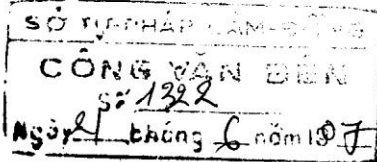 SỞ TƯ-PHÁP LÂM-ĐỒNG
CÔNG VĂN ĐẾN
Số 1322
Ngày 21 tháng 6 năm 19